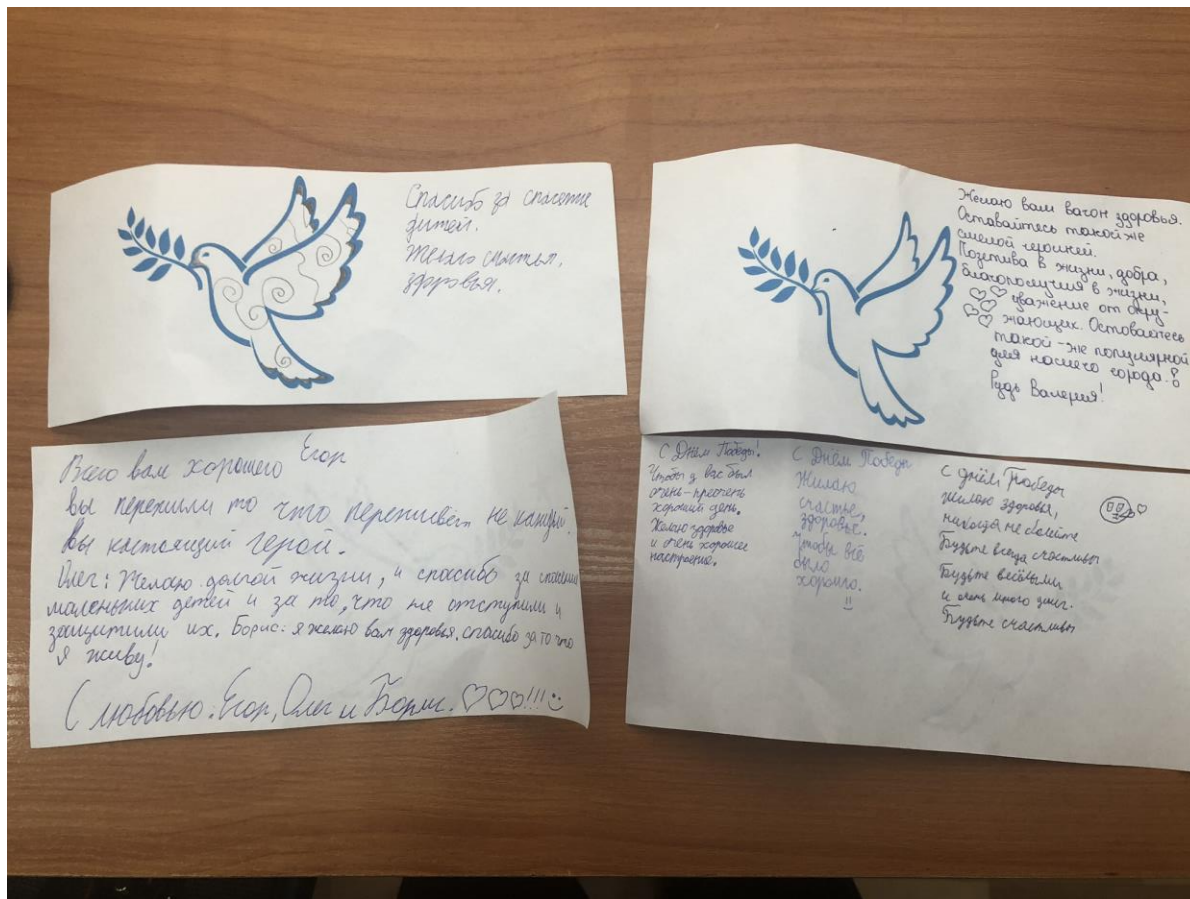 Спасибо за спасение
дитей.
Желаю счастья,
здоровья.
Желаю вам вагон здоровья.
Оставайтесь такой же
смелой героиней.
Позетива в жизни, добра,
благополучия в жизни,
уважение от окру-
жающих. Оставайтесь
такой-же популярной
для нашего города!
Рудь Валерия!
Всего вам хорошего Егор
Вы пережили то что переживёт не каждый.
Вы настоящий герой.
Олег: Желаю долгой жизни, и спасибо за спасение
маленьких детей и за то, что не отступили и
защитили их. Борис: я желаю вам здоровья. спасибо за то что
я живу!
С любовью: Егор, Олег и Борис. !!!
С Днём Победы!
Чтобы у вас был
очень-преочень
хороший день.
Желаю здоровье
и очень хорошее
настроение.
С Днём Победы
Желаю
счастье,
здоровье.
Чтобы всё
было
хорошо.
С днём Победы
желаю здоровья,
никогда не болейте
Будьте всегда счастливы
Будьте весёлыми
и очень много денег.
Будьте счастливы